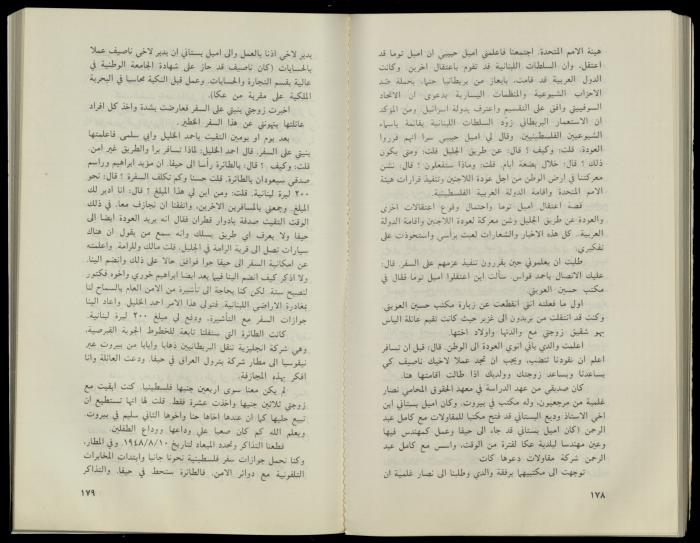 هيئة الامم المتحدة. اجتمعنا فاعلمني اميل حبيبي ان اميل توما قد
اعتقل، وان السلطات اللبنانية قد تقوم باعتقال آخرين. وكانت
الدول العربية قد قامت، بايعاز من بريطانيا حتما، بحملة ضد
الاحزاب الشيوعية والمنظمات اليسارية بدعوى ان الاتحاد
السوفييتي وافق على التقسيم واعترف بدولة اسرائيل. ومن المؤكد
ان الاستعمار البريطاني زوّد السلطات اللبنانية بقائمة باسماء
الشيوعيين الفلسطينيين. وقال لي اميل حبيبي سرا انهم قرروا
العودة. قلت: وكيف؟ قال: عن طريق الجليل. قلت: ومتى يكون
ذلك؟ قال: خلال بضعة ايام. قلت: وماذا ستفعلون؟ قال: نشن
معركتنا في ارض الوطن من اجل عودة اللاجئين وتنفيذ قرارات هيئة
الامم المتحدة واقامة الدولة العربية الفلسطينية.
قصة اعتقال اميل توما واحتمال وقوع اعتقالات اخرى
والعودة عن طريق الجليل وشن معركة لعودة اللاجئين واقامة الدولة
العربية. كل هذه الاخبار والشعارات لعبت برأسي واستحوذت على
تفكيري.
طلبت ان يعلموني حين يقررون تنفيذ عزمهم على السفر. قال:
عليك الاتصال باحمد قواس. سألت اين اعتقلوا اميل توما فقال في
مكتب حسين العويني.
اول ما فعلته انني انقطعت عن زيارة مكتب حسين العويني.
وكنت قد انتقلت من بريدون الى غزير حيث كانت تقيم عائلة الياس
بهو شقيق زوجتي مع والدتها واولاد اختها.
اعلمت والدي بأني انوي العودة الى الوطن. قال: قبل ان تسافر
اعلم ان نقودنا تنضب، ويجب ان تجد عملا لاخيك ناصيف كي
يساعدنا ويساعد زوجتك وولديك اذا طالت اقامتها هنا.
كان صديقي من عهد الدراسة في معهد الحقوق المحامي نصار
غلمية من مرجعيون، وله مكتب في بيروت. وكان اميل بستاني ابن
اخي الاستاذ وديع البستاني قد فتح مكتبا للمقاولات مع كامل عبد
الرحمن (كان اميل بستاني قد جاء الى حيفا وعمل كمهندس فيها
وعين مهندسا لبلدية عكا لفترة من الوقت، واسس مع كامل عبد
الرحمن شركة مقاولات دعوها كات
توجهت الى مكتبيهما برفقة والدي وطلبنا الى نصار غلمية ان
١٧٨
يدير لاخي اذنا بالعمل والى اميل بستاني ان يدير لاخي ناصيف عملا
بالحسابات (كان ناصيف قد حاز على شهادة الجامعة الوطنية في
عالية بقسم التجارة والحسابات. وعمل قبل النكبة محاسبا في البحرية
الملكية على مقربة من عكا).
اخبرت زوجتي بنيتي على السفر فعارضت بشدة واخذ كل افراد
عائلتها ينهونني عن هذا السفر الخطير.
بعد يوم او يومين التقيت باحمد الخليل وابي سلمى فاعلمتها
بنيتي على السفر. قال احمد الخليل: لماذا تسافر برا والطريق غير امن.
قلت: وكيف؟ قال: بالطائرة رأسا الى حيفا. ان مزيد ابراهيم وراسم
صدقي سيعودان بالطائرة. قلت: حسنا وكم تكلف السفرة؟ قال: نحو
٢٠٠ ليرة لبنانية. قلت: ومن اين لي هذا المبلغ؟ قال: انا ادبر لك
المبلغ. وجمعني بالمسافرين الآخرين، واتفقنا ان نجازف معا. في ذلك
الوقت التقيت صدفة بادوار قطران فقال انه يريد العودة ايضا الى
حيفا ولا يعرف اي طريق يسلك وانه سمع من يقول ان هناك
سيارات تصل الى قرية الرامة في الجليل. قلت مالك وللرامة. واعلمته
عن امكانية السفر الى حيفا جوا فوافق حالا على ذلك وانضم الينا.
ولا اذكر كيف انضم الينا فيما بعد ايضا ابراهيم خوري واخوه فكتور
لنصبح ستة. لكن كنا بحاجة الى تأشيرة من الامن العام بالسماح لنا
بمغادرة الاراضي اللبنانية. فتولى هذا الامر احمد الخليل. واعاد الينا
جوازات السفر مع التأشيرة، ودفع لي مبلغ ٢٠٠ ليرة لبنانية.
كانت الطائرة التي ستقلنا تابعة للخطوط الجوية القبرصية،
وهي شركة انجليزية تنقل البريطانيين ذهابا وايابا من بيروت عبر
نيقوسيا الى مطار شركة بترول العراق في حيفا. ودعت العائلة وانا
افكر بهذه المجازفة.
لم يكن معنا سوى اربعين جنيها فلسطينيا. كنت ابقيت مع
زوجتي ثلاثين جنيها واخذت عشرة فقط. قلت لها انها تستطيع ان
تبيع حليها كما ان عندها اخاها حنا واخوها الثاني سليم في بيروت.
ويعلم الله كم كان صعبا علي وداعها ووداع الطفلين.
قطعنا التذاكر وتحدد الميعاد لتاريخ ١٩٤٨/٨/١٠. وفي المطار،
وكنا نحمل جوازات سفر فلسطينية نحونا جانبا وابتدات المخابرات
التلفونية مع دوائر الامن. فالطائرة ستحط في حيفا. والتذاكر
١٧٩